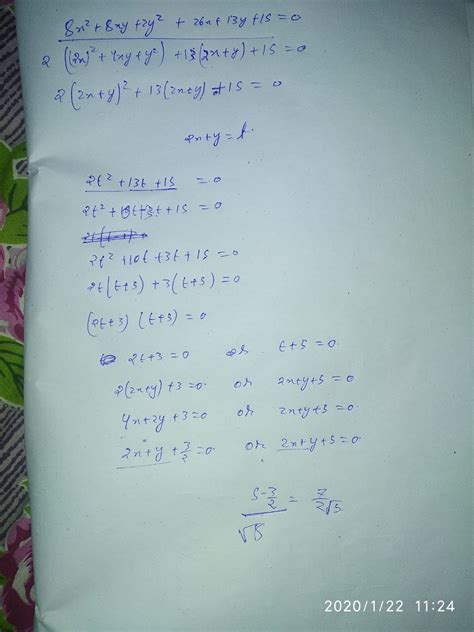 8x² + 8xy + 2y² + 26x + 13y + 15 = 0
2 ((2x)² + 4xy + y²) + 13(2x+y) + 15 = 0
2(2x+y)² + 13(2x+y) + 15 = 0
2x+y = t
2t² + 13t + 15 = 0
2t² + 10t + 3t + 15 = 0
2t² + 10t + 3t + 15 = 0
2t(t+5) + 3(t+5) = 0
(2t+3) (t+5) = 0
2t+3 = 0 or t+5 = 0
2(2x+y)+3 = 0 or 2x+y+5 = 0
4x+2y+3 = 0 or 2x+y+5 = 0
2x+y+3/2 = 0 or 2x+y+5 = 0
(5-3/2)/√5 = 7/2√5
2020/1/22 11:24